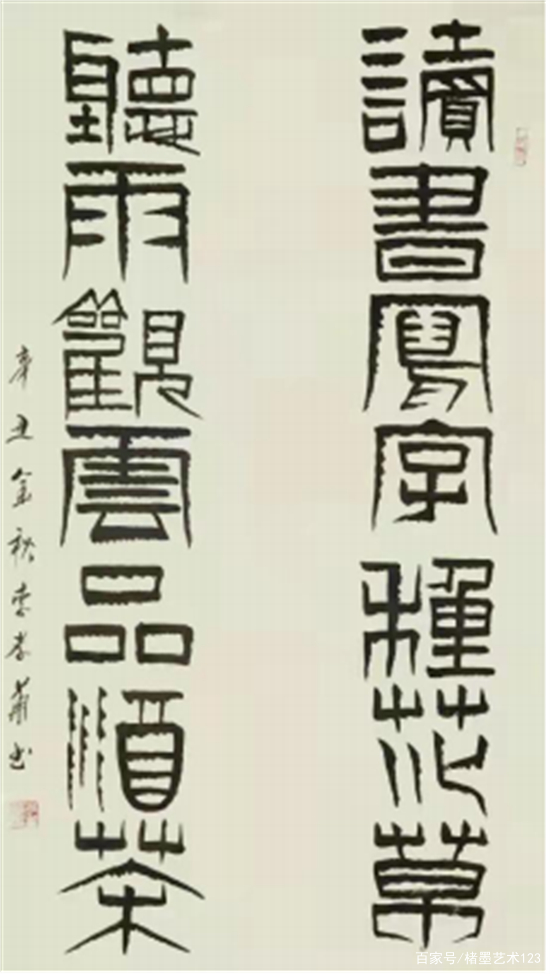 讀書寫字種花草
聽雨觀雲品酒茶
辛丑金秋李孝萧书
百家号/楮墨艺术123